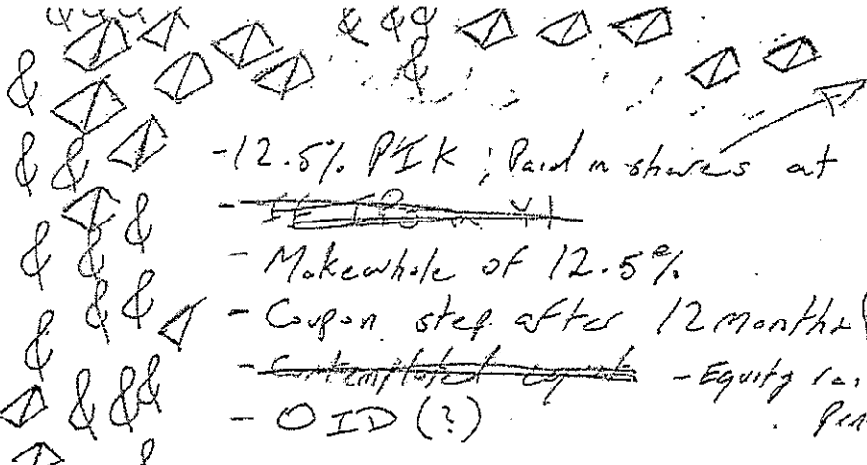 & & & & & & &
& &
& &
- 12.5% PIK ; Paid in shares at
& &
- Makewhole of 12.5%
& & &
- Coupon step after 12 months (
& & &
- Equity
& & & &
- OID (?)
&